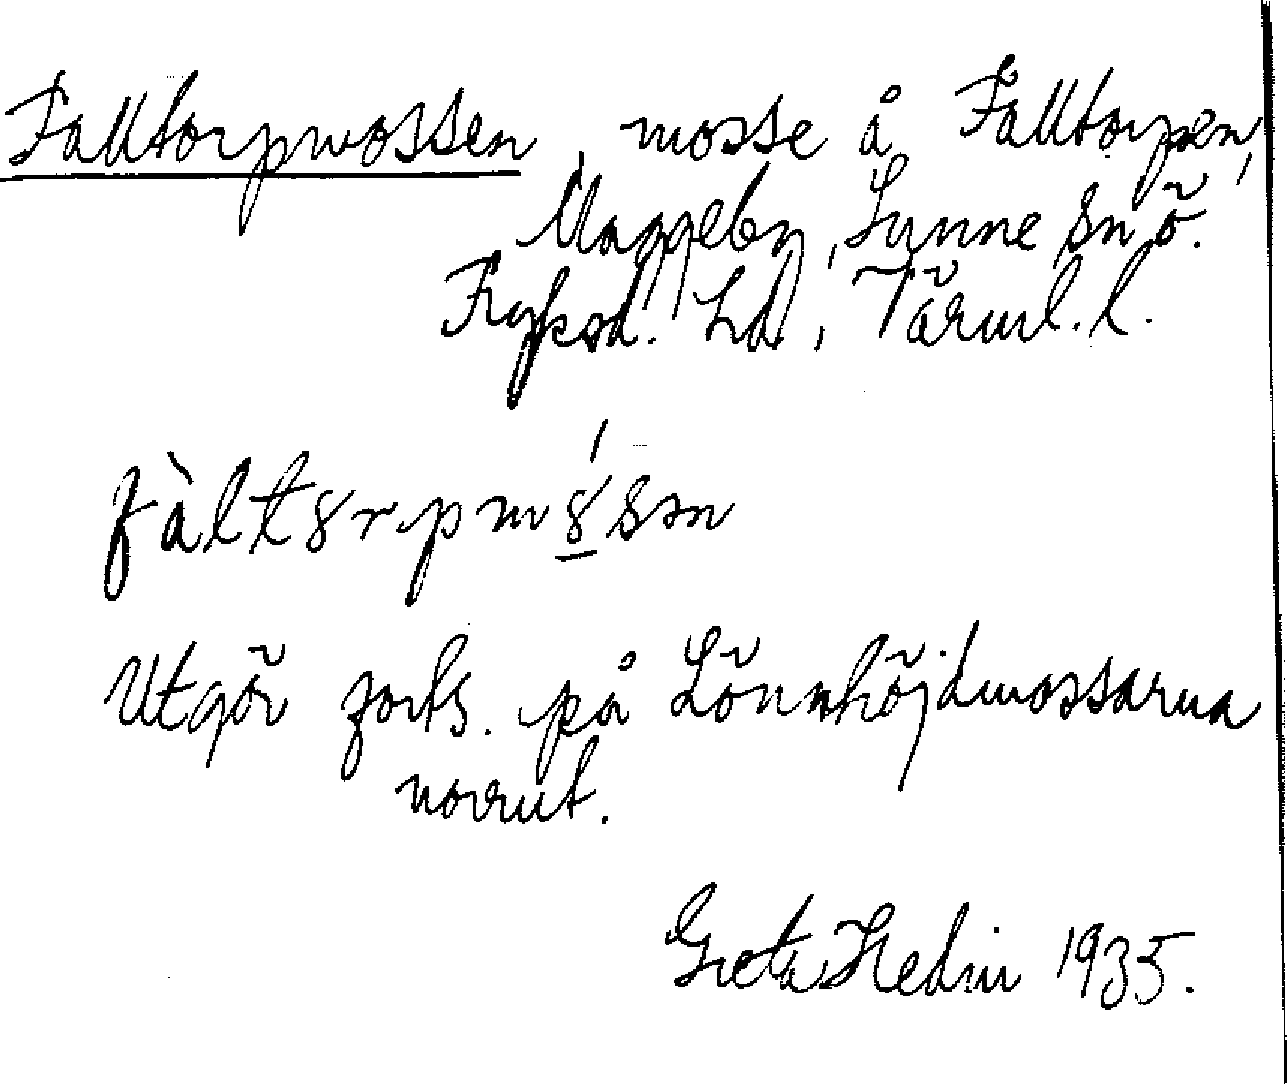 Falltorpmossen, mosse å Falltorpen,
Maggeby, Sunne sn ö.
Fryksd. hd, Värml. l.
fàltȣrpmȣ́sən
Utgör forts. på Lönnhöjdmossarna
norrut.
Greta Hedin 1935.